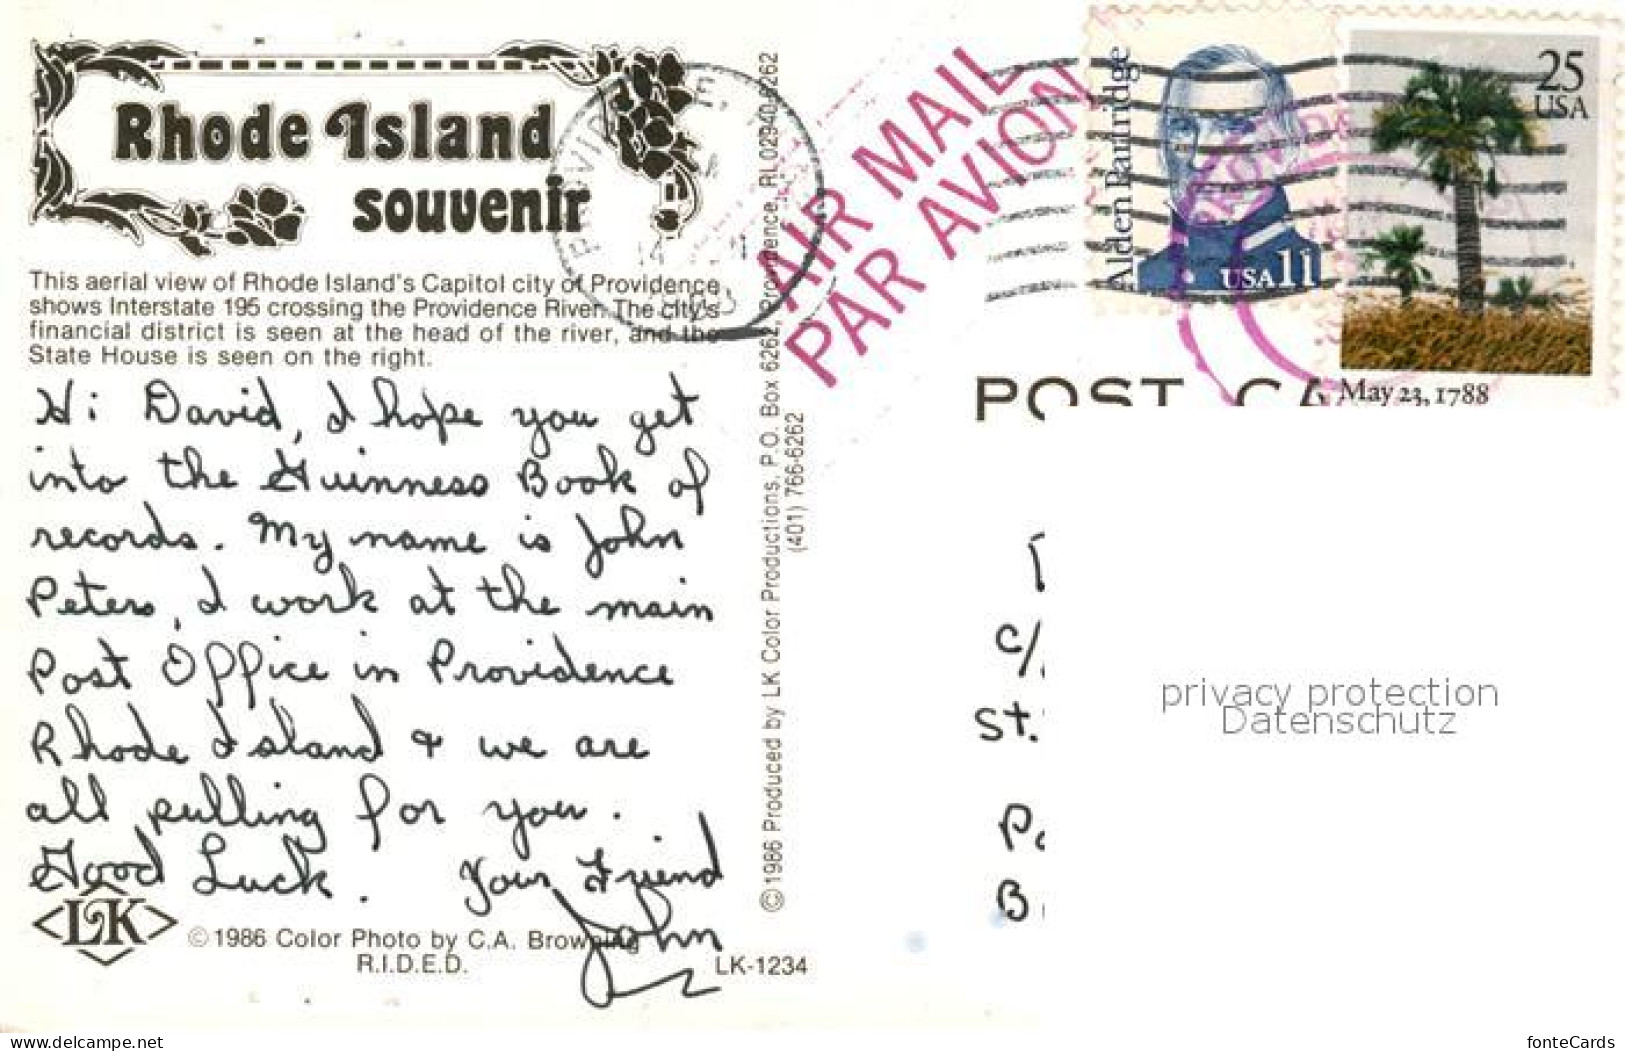 Rhode Island
souvenir
This aerial view of Rhode Island's Capitol city of Providence
shows Interstate 195 crossing the Providence River. The city's
financial district is seen at the head of the river, and the
State House is seen on the right.
Hi David, I hope you get
into the Guinness Book of
records. My name is John
Peters, I work at the main
Post Office in Providence
Rhode Island & we are
all pulling for you.
Good Luck. Your Friend
John
LK
© 1986 Color Photo by C.A. Browning
R.I.D.E.D.
LK-1234
© 1986 Produced by LK Color Productions, P.O. Box 6262, Providence, RI 02940-6262
(401) 766-6262
AIR MAIL
PAR AVION
Alden Partridge
USA 11
25
USA
May 23, 1788
POST CA
c/
St.
B
privacy protection
Datenschutz
www.delcampe.net
fonteCards